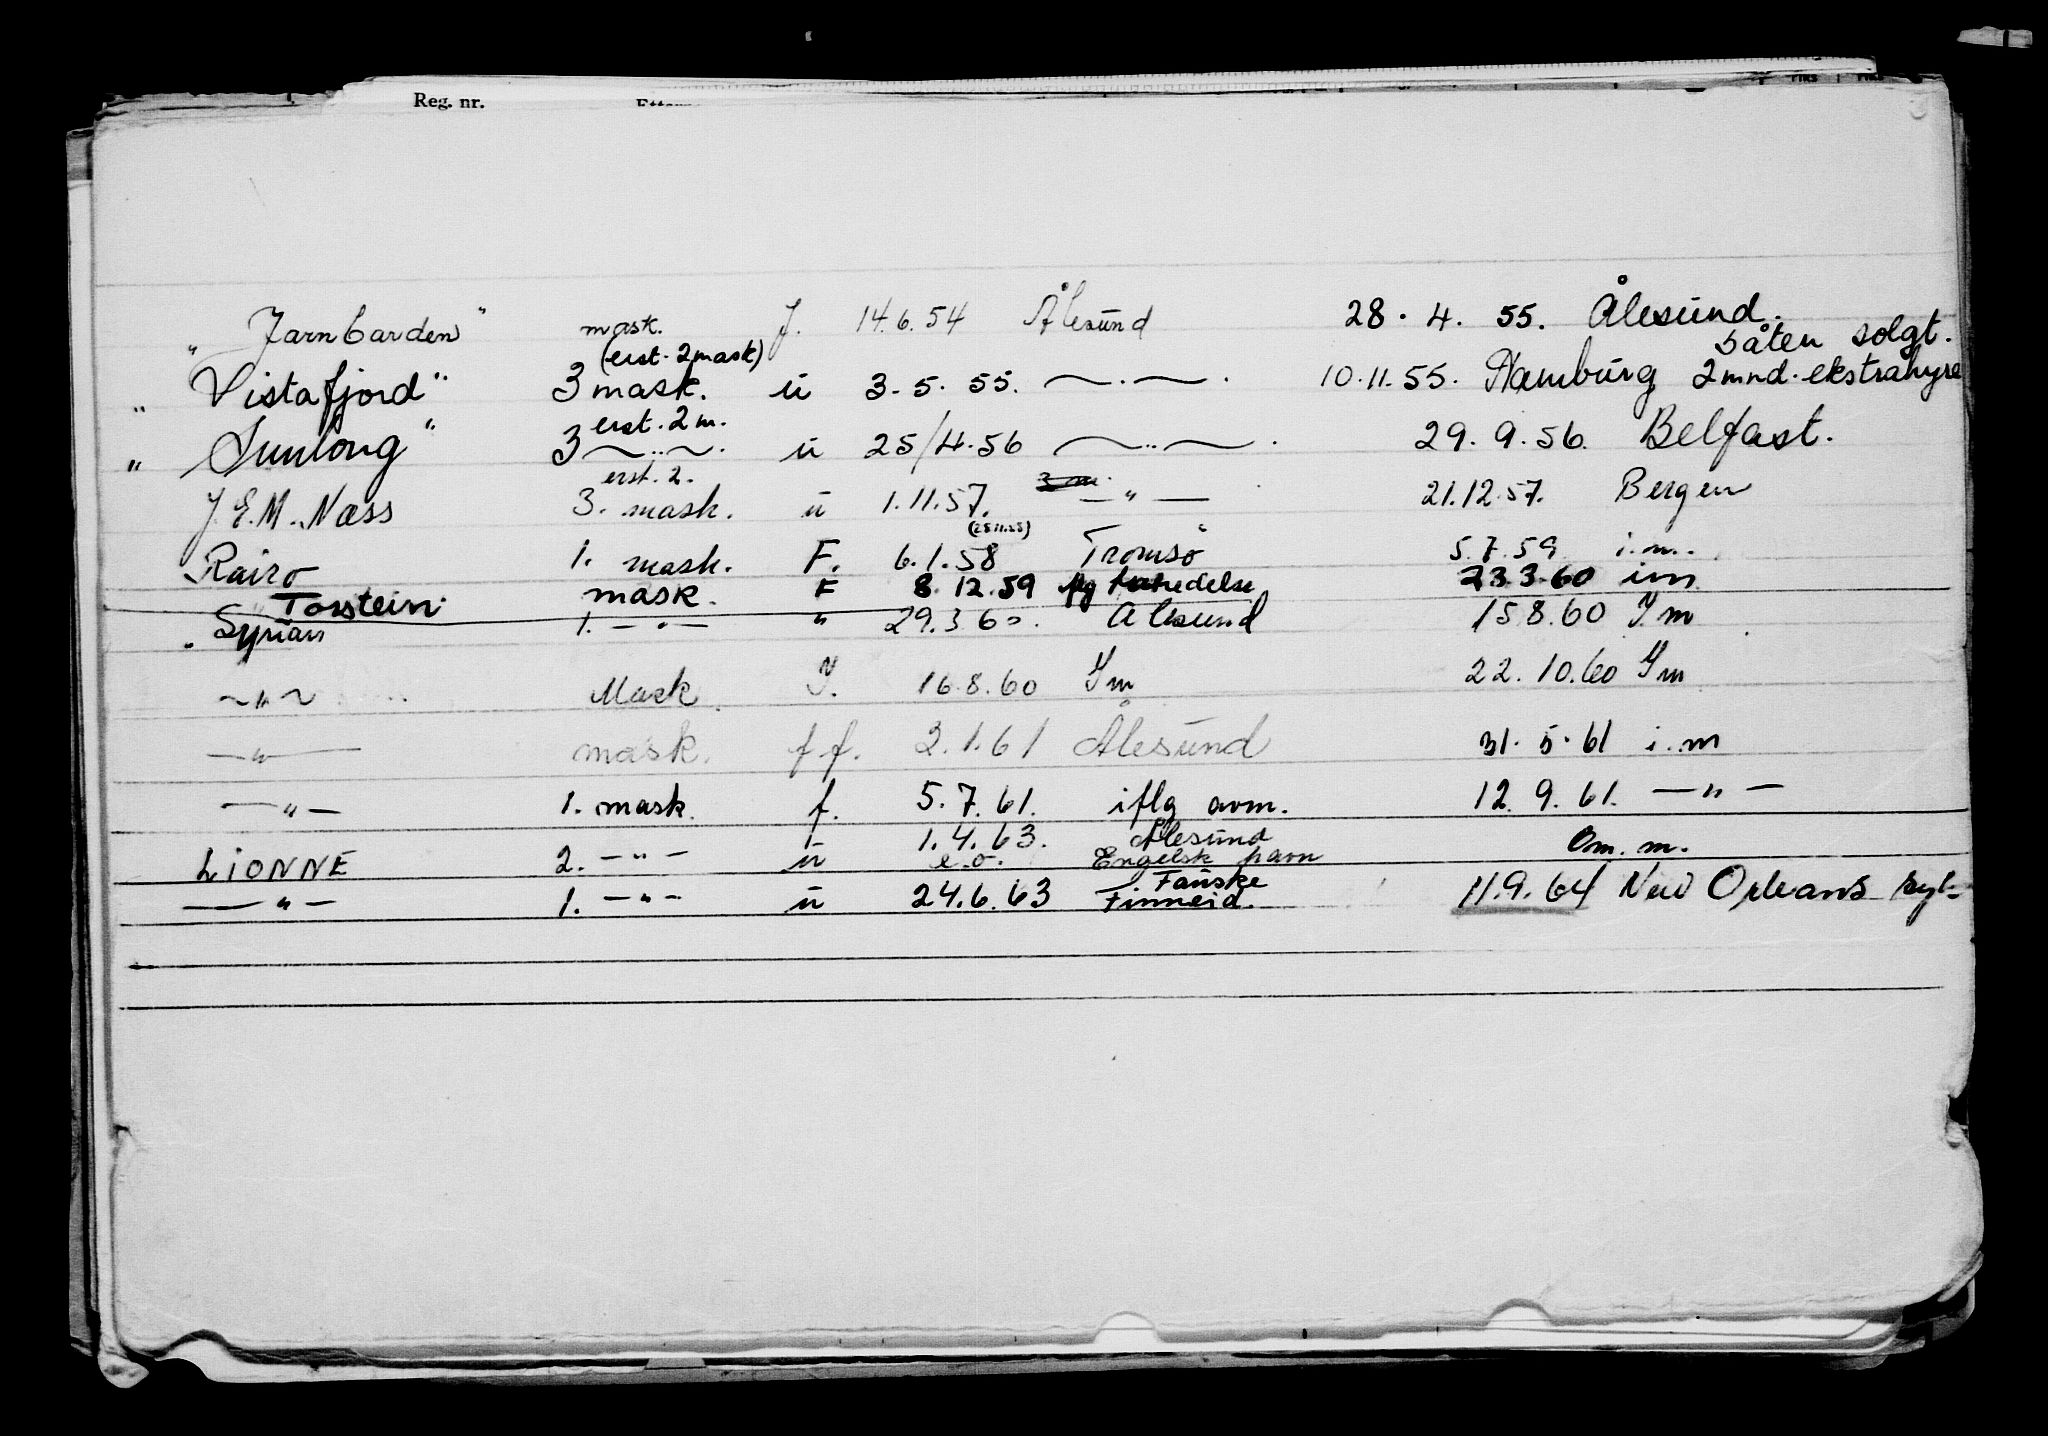 Reg. nr.
" Jarnbarden" mask. f. 14.6.54 Ålesund 28.4.55. Ålesund.
(erst. 2mask) båten solgt.
" Vistafjord" 3 mask. u 3.5.55. ~·~. 10.11.55. Hamburg 2 mnd. ekstrahyre
erst. 2 m.
" Sunlong" 3 ~..~. u 25/4.56 ~..~. 29.9.56. Belfast.
erst. 2.
J.E.M. Næss 3. mask. u 1.11.57. —"— 21.12.57. Bergen
Rairo 1. mask. F. 6.1.58 Tromsö 5.7.59 i.m.
Torstein mask. F 8.12.59 23.3.60 im
" Syrian 1. —"— " 29.3.60. Ålesund 15.8.60 I m
~"~ Mask I. 16.8.60 I m 22.10.60 I m
—"— mask. f f. 2.1.61 Ålesund 31.5.61 i.m
—"— 1. mask. f. 5.7.61. iflg avm. 12.9.61. —"—
1.4.63. Ålesund
LIONNE 2. —"— u e.o. Engelsk havn Om. m.
Fauske
—"— 1. —"— u 24.6.63 Finneid. 11.9.64 New Orleans syk-